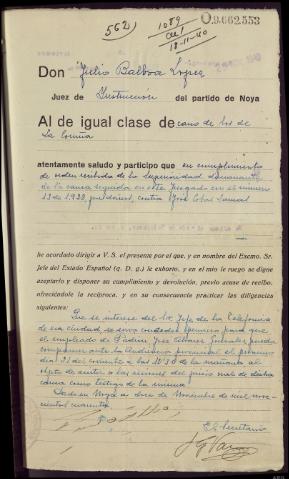 562
1089
18-11-40
O.9.662.553
Don Julio Balboa Lopez
Juez de Instrucción del partido de Noya
Al de igual clase decano de los de
La Coruña
atentamente saludo y participo que en cumplimiento
de orden recibida de la Superioridad dimanante
de la causa seguida en este Juzgado con el número
13 de 1938, por contra José
he acordado dirigir a V. S. el presente por el que, y en nombre del Excmo. Sr.
Jefe del Estado Español (q. D. g.) le exhorto, y en el mío le ruego se digne
aceptarlo y disponer su cumplimiento y devolución, previo acuse de recibo,
ofreciéndole la recíproca, y en su consecuencia practicar las diligencias
siguientes:
Que se interese del Sr. Jefe de la
de esa ciudad, se sirva conceder permiso para que
el empleado de Jose Alvarez pueda
comparecer ante la Audiencia provincial el próximo
dia 21 del corriente a las 10 30 de la mañana al
objeto de asistir a las sesiones del juicio oral de dicha
causa como testigo de la misma
Dado en Noya a doce de Noviembre de mil nove-
cientos cuarenta
El Secretario